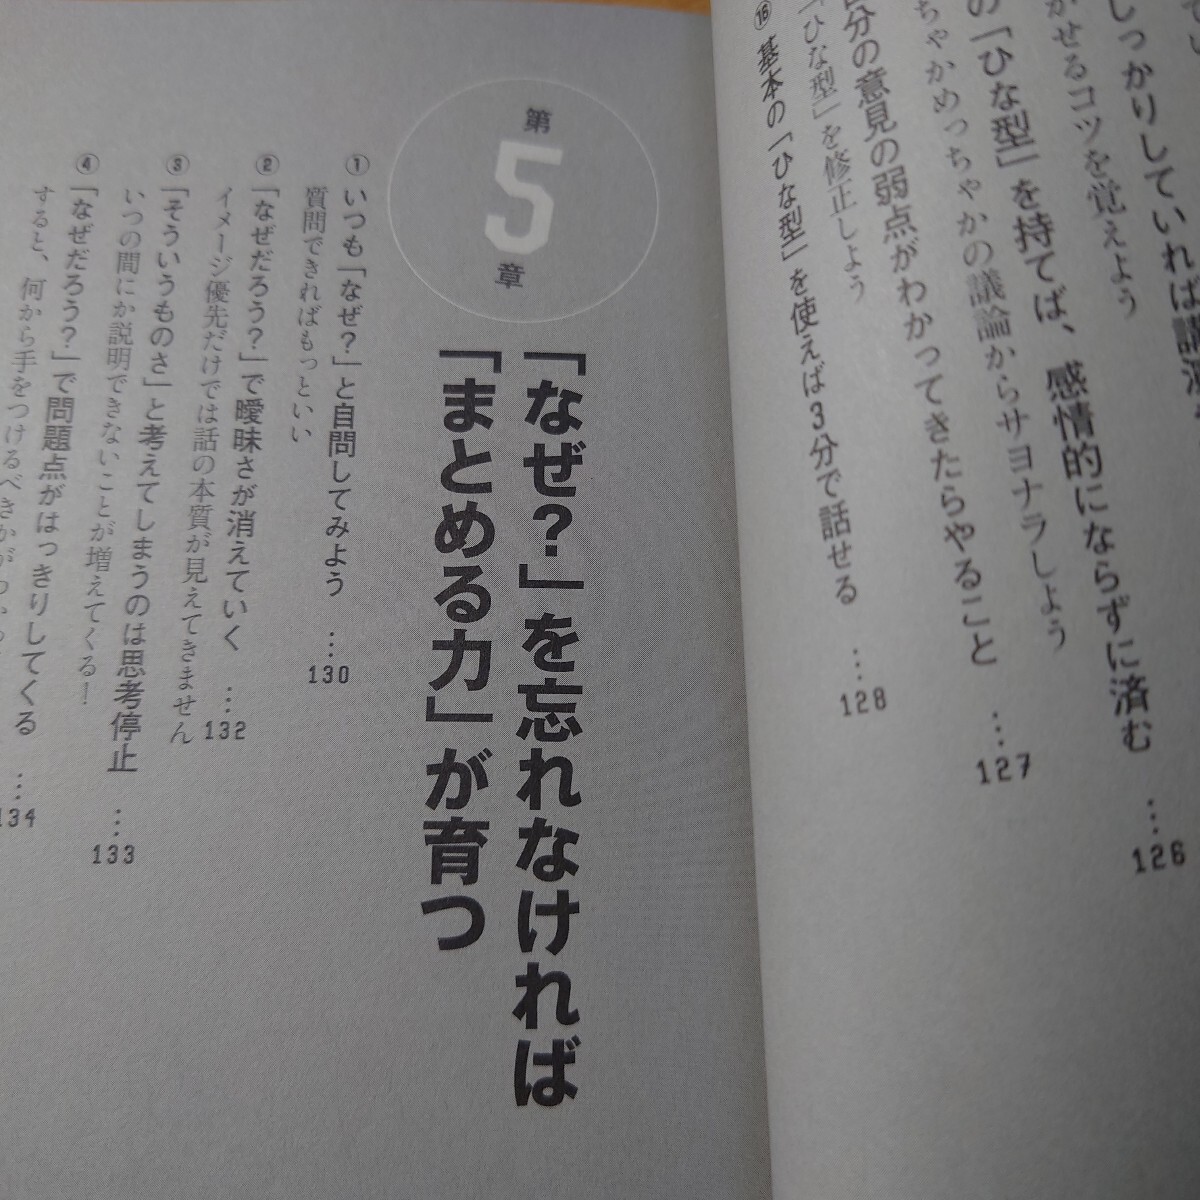 しっかりしていれば講演
かせるコツを覚えよう
の「ひな型」を持てば、感情的にならずに済む …126
ちゃかめっちゃかの議論からサヨナラしよう
分の意見の弱点がわかってきたらやること …127
「ひな型」を修正しよう
⑯ 基本の「ひな型」を使えば3分で話せる …128
第5章
「なぜ？」を忘れなければ
「まとめる力」が育つ
① いつも「なぜ？」と自問してみよう …130
質問できればもっといい
② 「なぜだろう？」で曖昧さが消えていく …132
イメージ優先だけでは話の本質が見えてきません
③ 「そういうものさ」と考えてしまうのは思考停止 …133
いつの間にか説明できないことが増えてくる！
④ 「なぜだろう？」で問題点がはっきりしてくる …134
すると、何から手をつけるべきかが